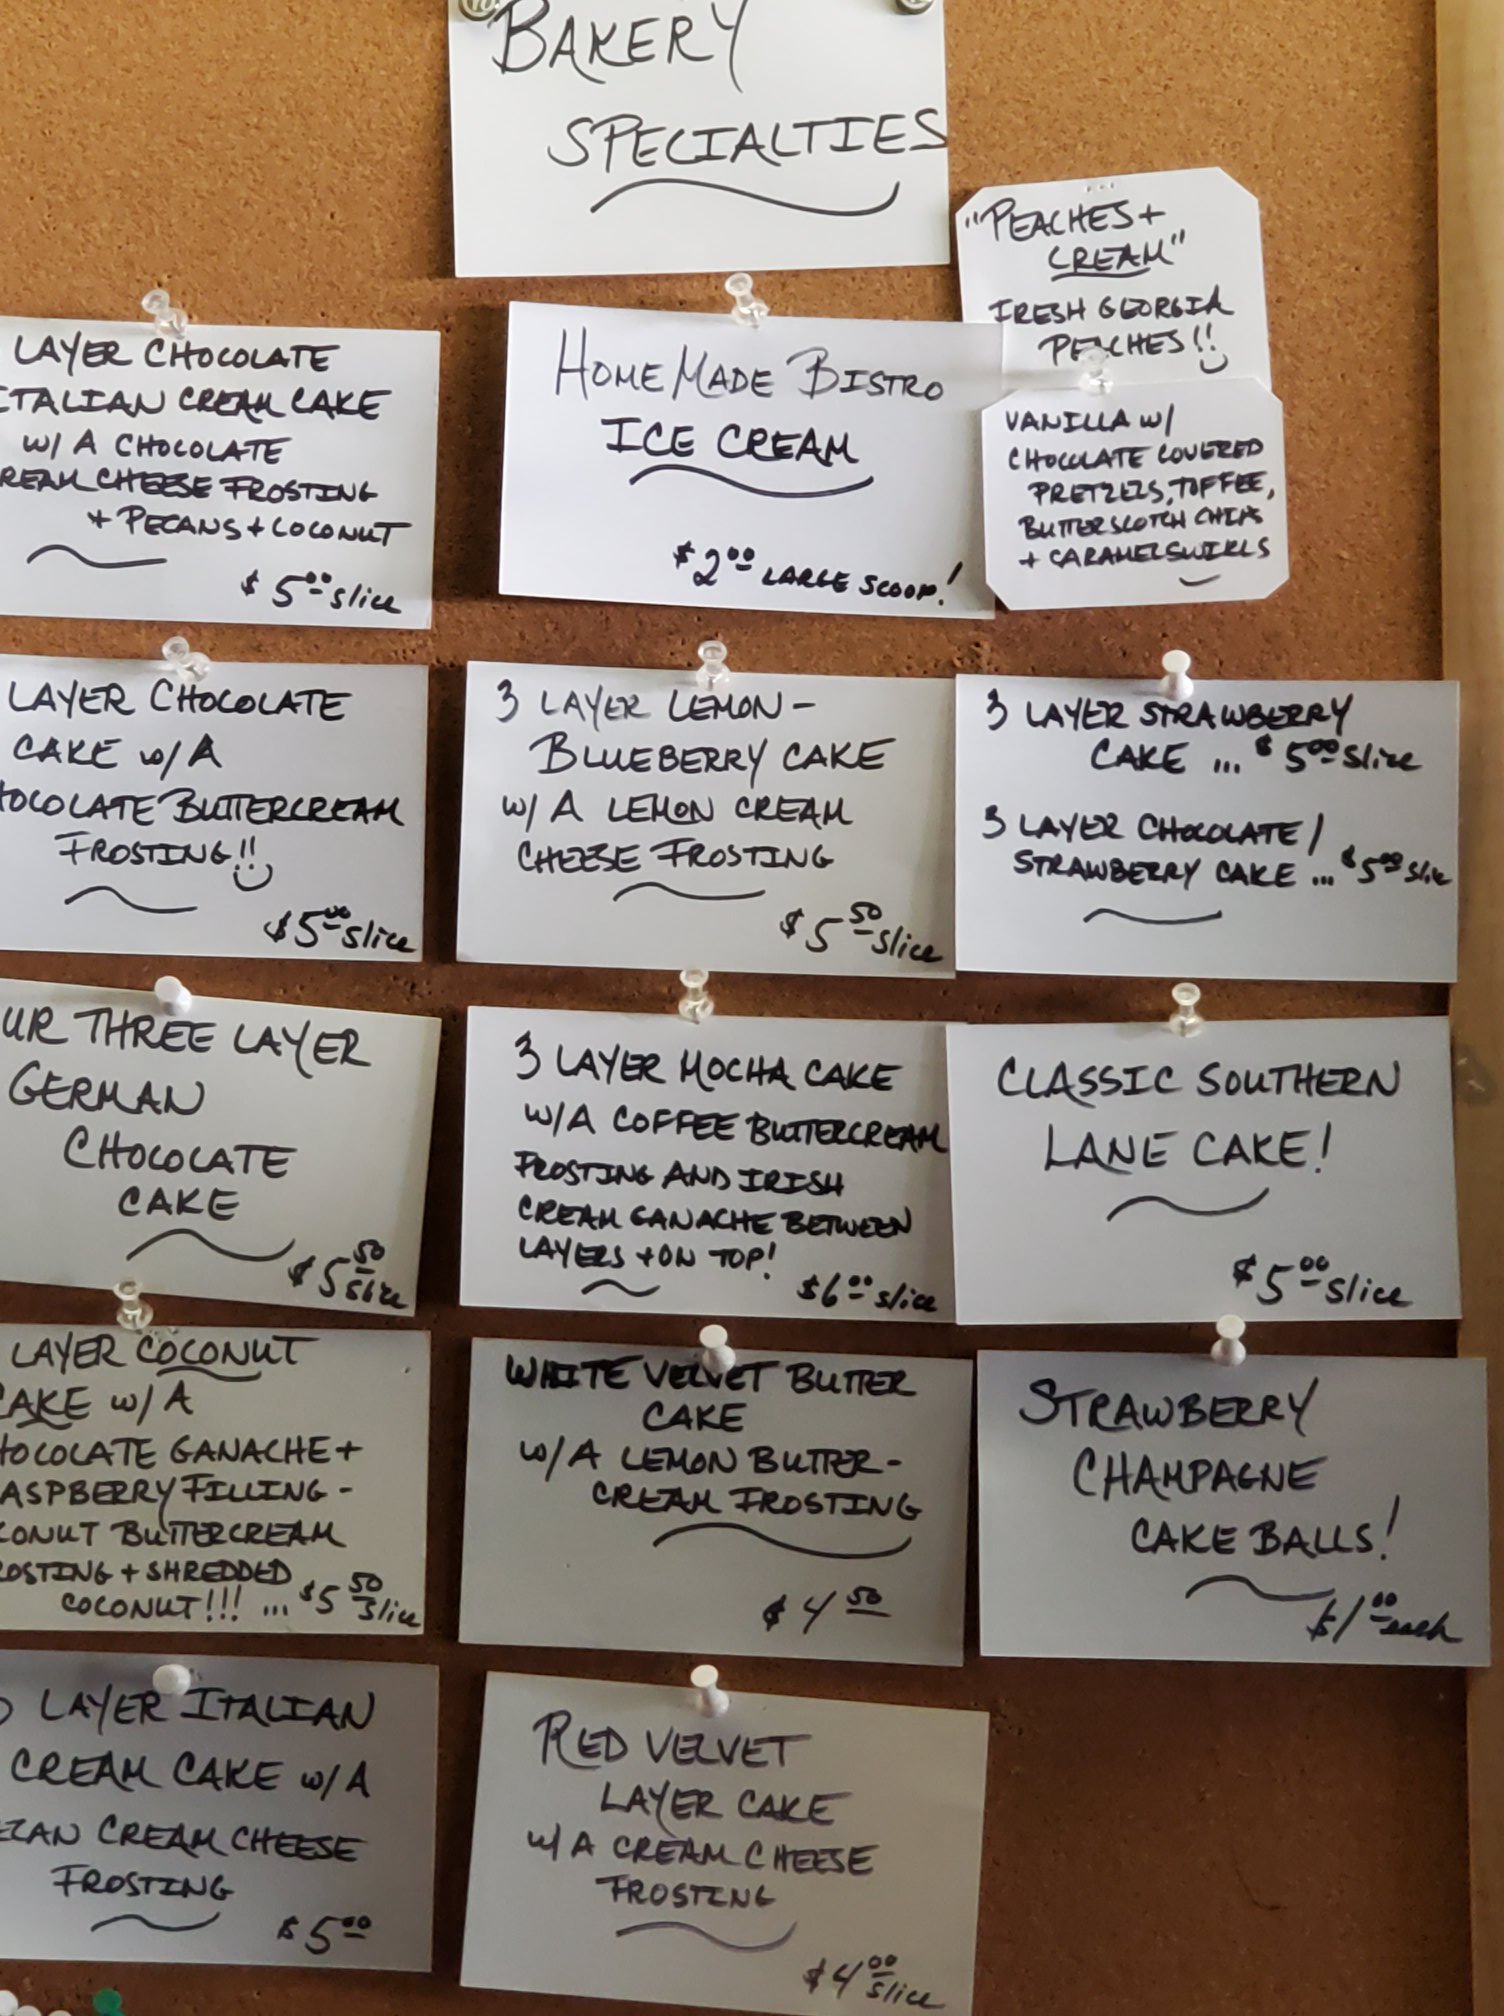 BAKERY
SPECIALTIES
"PEACHES +
CREAM"
FRESH GEORGIA
PEACHES!!
VANILLA W/
CHOCOLATE COVERED
PRETZELS, TOFFEE,
BUTTERSCOTCH CHIPS
+ CARAMEL SWIRLS
LAYER CHOCOLATE
ITALIAN CREAM CAKE
W/ A CHOCOLATE
REAM CHEESE FROSTING
+ PECANS + COCONUT
$5.00 slice
HOMEMADE BISTRO
ICE CREAM
$2.00 LARGE SCOOP!
LAYER CHOCOLATE
CAKE W/ A
HOCOLATE BUTTERCREAM
FROSTING!!
$5.00 slice
3 LAYER LEMON-
BLUEBERRY CAKE
W/ A LEMON CREAM
CHEESE FROSTING
$5.50 slice
3 LAYER STRAWBERRY
CAKE ... $5.00 slice
3 LAYER CHOCOLATE/
STRAWBERRY CAKE ... $5.00 slice
UR THREE LAYER
GERMAN
CHOCOLATE
CAKE
$5.50 slice
3 LAYER MOCHA CAKE
W/A COFFEE BUTTERCREAM
FROSTING AND IRISH
CREAM GANACHE BETWEEN
LAYERS + ON TOP!
$6.00 slice
CLASSIC SOUTHERN
LANE CAKE!
$5.00 slice
LAYER COCONUT
CAKE W/ A
HOCOLATE GANACHE +
ASPBERRY FILLING -
CONUT BUTTERCREAM
ROSTING + SHREDDED
COCONUT!!! ... $5.50 slice
WHITE VELVET BUTTER
CAKE
W/ A LEMON BUTTER-
CREAM FROSTING
$4.50
STRAWBERRY
CHAMPAGNE
CAKE BALLS!
$1.00 each
LAYER ITALIAN
CREAM CAKE W/ A
ECAN CREAM CHEESE
FROSTING
$5.00
RED VELVET
LAYER CAKE
W/ A CREAM CHEESE
FROSTING
$4.00 slice